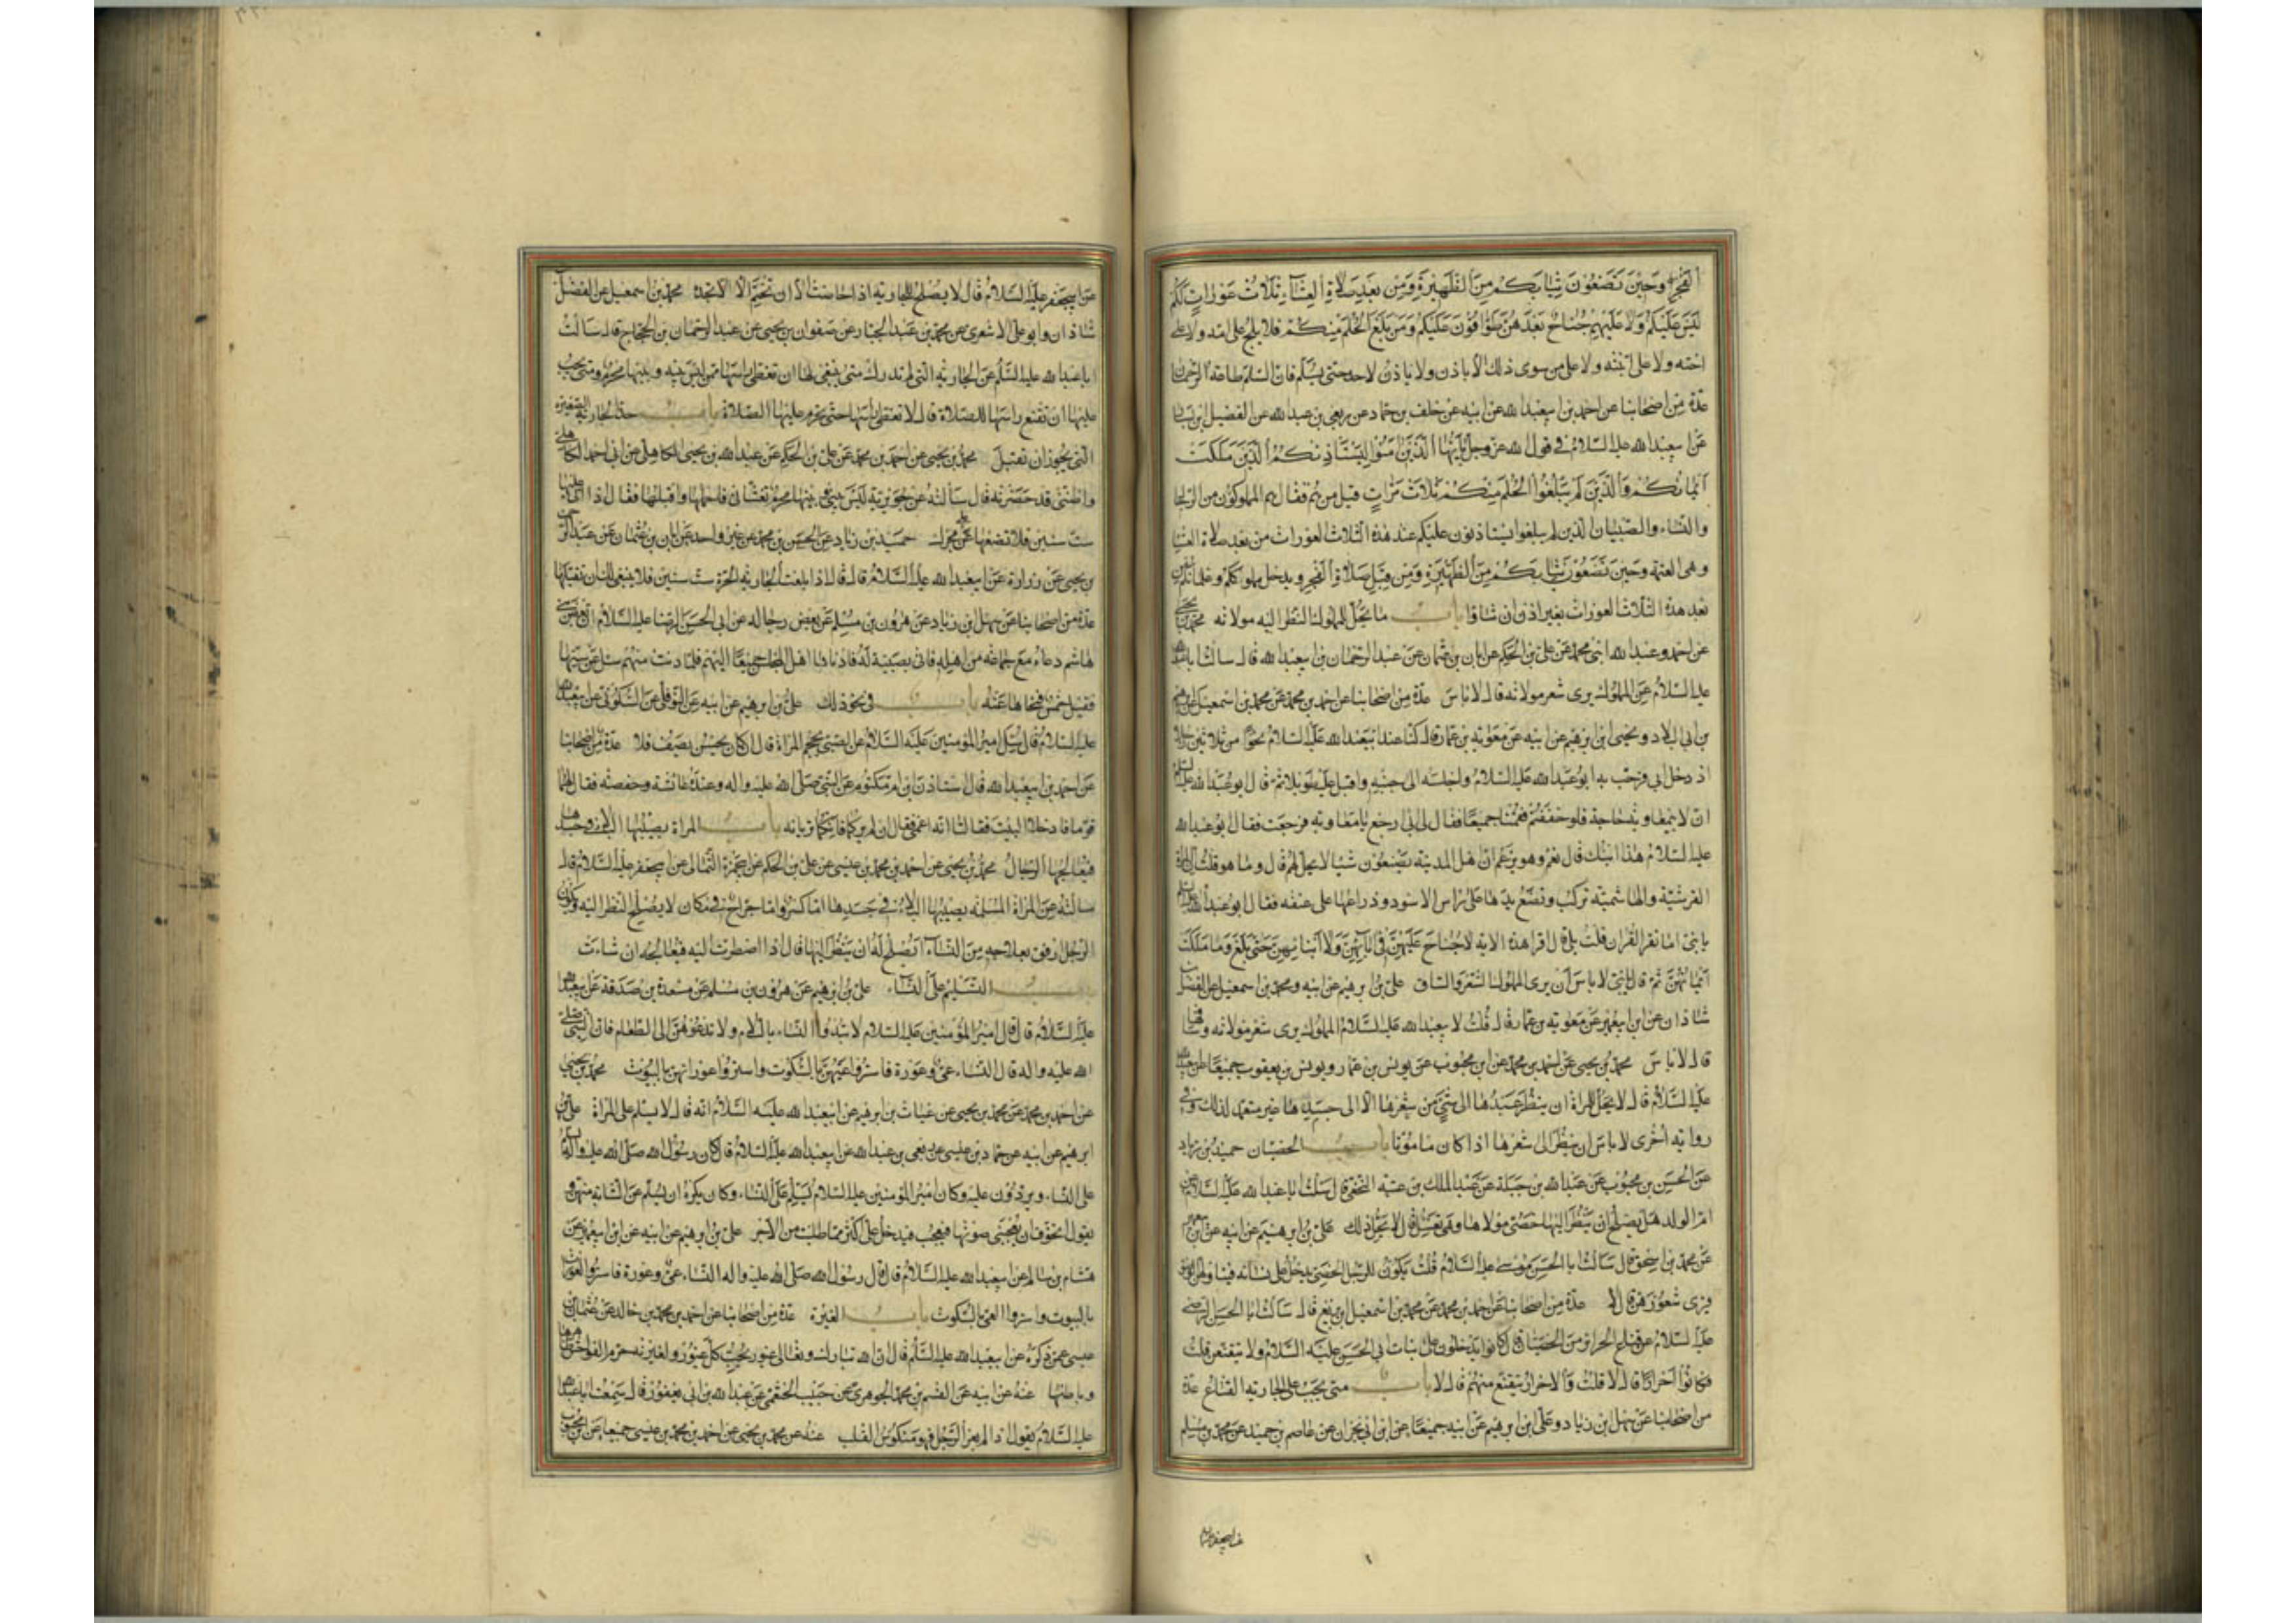 الفجر وحين تضعون ثيابكم من الظهيرة ومن بعد صلاة العشاء ثلاث عورات لكم
ليس عليكم ولا عليهم جناح بعدهن طوافون عليكم ومن بلغ الحلم منكم فلا يلج على امه ولا على
اخته ولا على ابنته ولا على من سوى ذلك الا باذن ولا ياذن لاحد حتى يسلم فان السلم طاعة الرحمن
عدة من اصحابنا عن احمد بن ابيعبد الله عن ابيه عن خلف بن حماد عن ربعي بن عبد الله عن الفضيل بن يسار
عن ابيعبد الله عليه السلام في قول الله عز وجل يا ايها الذين امنوا ليستاذنكم الذين ملكت
ايمانكم والذين لم يبلغوا الحلم منكم ثلاث مرات قيل من هم فقال هم المملوكون من الرجال
والنساء والصبيان الذين لم يبلغوا يستاذنون عليكم عند هذه الثلاث العورات من بعد صلاة العشاء
وهي العتمة وحين تضعون ثيابكم من الظهيرة ومن قبل صلاة الفجر ويدخل مملوككم وغلمانكم من
بعد هذه الثلاث العورات بغير اذن ان شاؤا باب ما يحل للمملوك النظر اليه مولاته محمد بن يحيى
عن احمد وعبد الله ابني محمد عن علي بن الحكم عن ابان بن عثمان عن عبد الرحمان بن ابيعبد الله قال سالت ابا عبد الله
عليه السلام عن المملوك يرى شعر مولاته قال لا باس عدة من اصحابنا عن احمد بن محمد عن محمد بن اسمعيل عن ابرهيم
بن ابي البلاد ويحيى بن ابرهيم عن ابيه عن معوية بن عمار قال كنا عند ابيعبد الله عليه السلام نحوا من ثلاثين رجلا
اذ دخل ابي فرحب به ابو عبد الله عليه السلام واجلسه الى جنبه واقبل عليه طويلا ثم قال ابو عبد الله عليه السلام
ان لابي معاوية حاجة فلو خففتم فقمنا جميعا فقال لي ابي ارجع يا معاوية فرجعت فقال ابو عبد الله
عليه السلام هذا ابنك قال نعم وهو يزعم ان اهل المدينة يصنعون شيئا لا يحل لهم قال وما هو قلت ان المراة
القرشية والهاشمية تركب وتضع يدها على راس الاسود وذراعها على عنقه فقال ابو عبد الله عليه السلام
يا بني اما تقرا القران قلت بلى قال اقرا هذه الاية لا جناح عليهن في ابائهن ولا ابنائهن حتى بلغ وما ملكت
ايمانهن ثم قال يا بني لا باس ان يرى المملوك الشعر والساق علي بن ابرهيم عن ابيه ومحمد بن اسمعيل عن الفضل بن
شاذان عن ابن ابيعمير عن معوية بن عمار قال قلت لابيعبد الله عليه السلام المملوك يرى شعر مولاته وساقها
قال لا باس محمد بن يحيى عن احمد بن محمد عن ابن محبوب عن يونس بن عمار ويونس بن يعقوب جميعا عن ابيعبد الله
عليه السلام قال لا يحل للمراة ان ينظر عبدها الى شيء من جسدها الا الى شعرها غير متعمد لذلك وفي
رواية اخرى لا باس ان ينظر الى شعرها اذا كان مامونا باب الخصيان حميد بن زياد
عن الحسن بن محبوب عن عبد الله بن جبلة عن عبد الملك بن عتبة النخعي قال سالت ابا عبد الله عليه السلام عن
ام الولد هل يصلح ان ينظر اليها خصي مولاها وهي تغتسل قال لا يحل ذلك علي بن ابرهيم عن ابيه عن ابن ابيعمير
عن محمد بن اسحق قال سالت ابا الحسن موسى عليه السلام قلت يكون للرجل الخصي يدخل على نسائه فيناولهن الوضوء
فيرى شعورهن قال لا عدة من اصحابنا عن احمد بن محمد عن محمد بن اسمعيل بن بزيع قال سالت ابا الحسن الرضى
عليه السلام عن قناع الحراير من الخصيان قال كانوا يدخلون على بنات ابي الحسن عليه السلام ولا يتقنعن قلت
فكانوا احرارا قال لا قلت والاحرار يتقنع منهم قال لا باب متى يجب على الجارية القناع عدة
من اصحابنا عن سهل بن زياد وعلي بن ابرهيم عن ابيه جميعا عن ابن ابي نجران عن عاصم بن حميد عن محمد بن مسلم
عن ابيجعفر عليه السلام
عن ابيجعفر عليه السلام قال لا يصلح للجارية اذا حاضت الا ان تختمر الا ان لا تجده محمد بن اسمعيل عن الفضل بن
شاذان وابو علي الاشعري عن محمد بن عبد الجبار عن صفوان بن يحيى عن عبد الرحمان بن الحجاج قال سالت
ابا عبد الله عليه السلم عن الجارية التي لم تدرك متى ينبغي لها ان تغطي راسها ممن ليس بينه وبينها محرم ومتى يجب
عليها ان تقنع راسها للصلاة قال لا تغطي راسها حتى يحرم عليها الصلاة باب حد الجارية الصغيرة
التي يجوز ان تقبل محمد بن يحيى عن احمد بن محمد عن علي بن الحكم عن عبد الله بن يحيى الكاهلي عن ابي احمد الكاهلي
واظنني قد حضرته قال سالته عن جويرية ليس بيني وبينها محرم تغشاني فاحملها واقبلها فقال اذا اتى عليها
ست سنين فلا تضعها على حجرك حميد بن زياد عن الحسن بن محمد عن غير واحد عن ابان بن عثمان عن عبد الرحمن
بن يحيى عن زرارة عن ابيعبد الله عليه السلام قال قال اذا بلغت الجارية الحرة ست سنين فلا ينبغي لك ان تقبلها
عدة من اصحابنا عن سهل بن زياد عن هرون بن مسلم عن بعض رجاله عن ابي الحسن الرضا عليه السلام ان بعض بني
هاشم دعاه مع جماعة من اهله فاتى بصبية له فادناها اهل المجلس جميعا اليهم فلما دنت منهم سال عن سنها
فقيل خمس فنحاها عنه باب في نحو ذلك علي بن ابرهيم عن ابيه عن النوفلي عن السكوني عن ابيعبد الله
عليه السلام قال سئل امير المؤمنين عليه السلام عن الصبي يحجم المراة قال ان كان يحسن يصف فلا عدة من اصحابنا
عن احمد بن ابيعبد الله قال استاذن ابن ام مكتوم على النبي صلى الله عليه واله وعنده عائشة وحفصة فقال لهما
قوما فادخلا البيت فقالتا انه اعمى فقال ان لم يركما فانكما تريانه باب المراة يصيبها البلاء في جسدها
فيعالجها الرجال محمد بن يحيى عن احمد بن محمد بن عيسى عن علي بن الحكم عن ابيحمزة الثمالي عن ابيجعفر عليه السلام قال
سالته عن المراة المسلمة يصيبها البلاء في جسدها اما كسر واما جراح في مكان لا يصلح النظر اليه ويكون
الرجل ارفق بعلاجه من النساء ايصلح له ان ينظر اليها قال اذا اضطرت اليه فيعالجه ان شاءت
باب التسليم على النساء علي بن ابرهيم عن هرون بن مسلم عن مسعدة بن صدقة عن ابيعبد الله
عليه السلام قال قال امير المؤمنين عليه السلام لا تبدوا النساء بالسلام ولا تدعوهن الى الطعام فان النبي صلى
الله عليه واله قال النساء عي وعورة فاستروا عيهن بالسكوت واستروا عوراتهن بالبيوت محمد بن يحيى
عن احمد بن محمد عن محمد بن يحيى عن غياث بن ابرهيم عن ابيعبد الله عليه السلام انه قال لا يسلم على المراة علي بن
ابرهيم عن ابيه عن حماد بن عيسى عن ربعي بن عبد الله عن ابيعبد الله عليه السلام قال كان رسول الله صلى الله عليه واله يسلم
على النساء ويرددون عليه وكان امير المؤمنين عليه السلام يسلم على النساء وكان يكره ان يسلم على الشابة منهن و
يقول اتخوف ان يعجبني صوتها فيدخل علي اكثر مما طلبت من الاجر علي بن ابرهيم عن ابيه عن ابن ابيعمير عن
هشام بن سالم عن ابيعبد الله عليه السلام قال قال رسول الله صلى الله عليه واله النساء عي وعورة فاستروا العورات
بالبيوت واستروا العي بالسكوت باب الغيرة عدة من اصحابنا عن احمد بن محمد بن خالد عن عثمان بن
عيسى عمن ذكره عن ابيعبد الله عليه السلم قال ان الله تبارك وتعالى غيور يحب كل غيور ولغيرته حرم الفواحش ظاهرها
وباطنها عنه عن ابيه عن القسم بن محمد الجوهري عن حبيب الخثعمي عن عبد الله بن ابي يعفور قال سمعت ابا عبد الله
عليه السلام يقول اذا لم يغر الرجل فهو منكوس القلب عنه عن محمد بن يحيى عن احمد بن محمد بن عيسى جميعا عن ابن محبوب